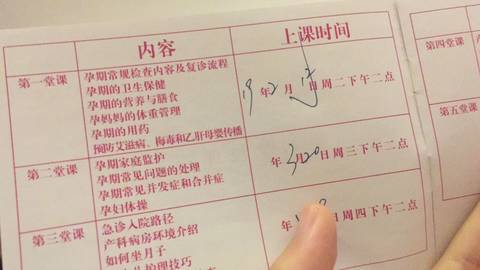 内容
上课时间
第一堂课
孕期常规检查内容及复诊流程
孕期的卫生保健
孕期的营养与膳食
孕妈妈的体重管理
孕期的用药
预防艾滋病、梅毒和乙肝母婴传播
19年2月 日周二下午二点
第二堂课
孕期家庭监护
孕期常见问题的处理
孕期常见并发症和合并症
孕妇体操
年3月20日周三下午二点
第三堂课
急诊入院路径
产科病房环境介绍
如何坐月子
护理技巧
年 日周四下午二点
第四堂课
第五堂课